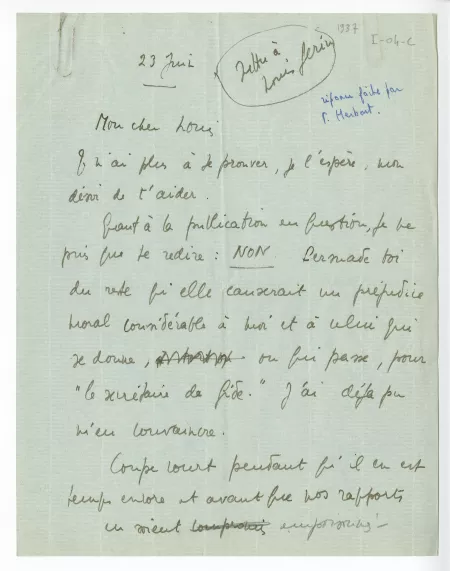 1937
I-04-C
23 Juin
lettre à
Louis Gérin
réponse faite par
P. Herbart.
Mon cher Louis
Je n'ai plus à te prouver, je l'espère, mon
désir de t'aider.
Quant à la publication en question, je ne
puis que te redire : NON. Persuade toi
du reste qu'elle causerait un préjudice
moral considérable à moi et à celui qui
se donne, ou qui passe, pour
"le secrétaire de Gide." J'ai déjà pu
m'en convaincre.
Coupe court pendant qu'il en est
temps encore et avant que nos rapports
en soient compromis empoisonnés